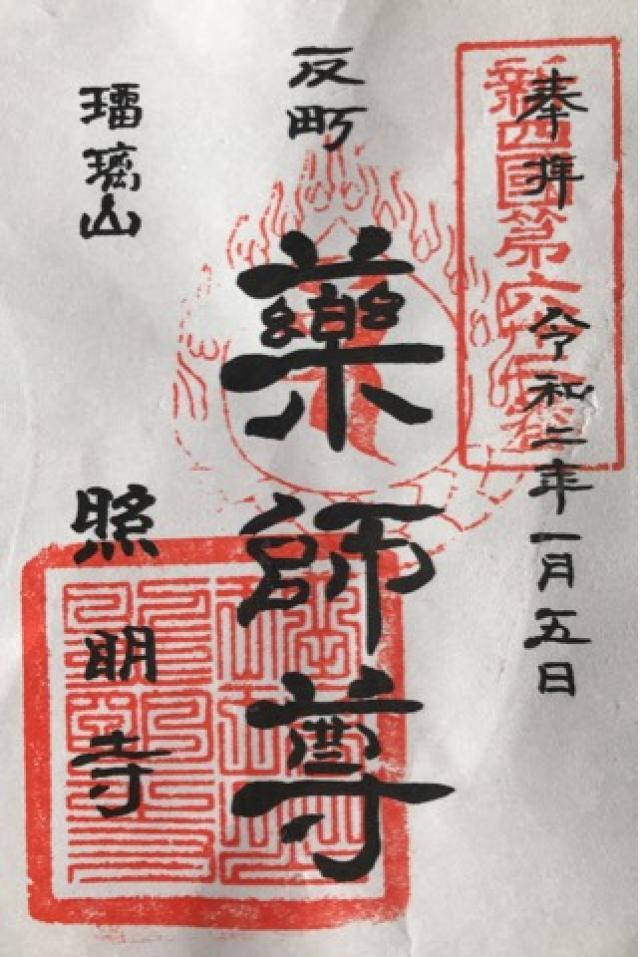 奉拝 令和二年一月五日
新四國第六
反町
藥師尊
璢璃山
照明寺